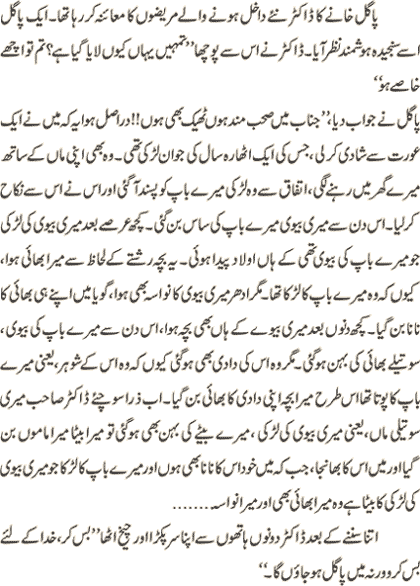 پاگل خانے کا ڈاکٹر نئے داخل ہونے والے مریضوں کا معائنہ کر رہا تھا۔ ایک پاگل
اسے سنجیدہ ہوشمند نظر آیا۔ ڈاکٹر نے اس سے پوچھا ’’تمہیں یہاں کیوں لایا گیا ہے؟ تم تو اچھے
خاصے ہو‘‘
پاگل نے جواب دیا، ’’جناب میں صحب مند ہوں ٹھیک بھی ہوں!! دراصل ہوا یہ کہ میں نے ایک
عورت سے شادی کر لی، جس کی ایک اٹھارہ سال کی جوان لڑکی تھی۔ وہ بھی اپنی ماں کے ساتھ
میرے گھر میں رہنے لگی، اتفاق سے وہ لڑکی میرے باپ کو پسند آ گئی اور اس نے اس سے نکاح
کر لیا۔ اس دن سے میری بیوی میرے باپ کی ساس بن گئی۔ کچھ عرصے بعد میری بیوی کی لڑکی
جو میرے باپ کی بیوی تھی کے ہاں اولاد پیدا ہوئی۔ یہ بچہ رشتے کے لحاظ سے میرا بھائی ہوا،
کیوں کہ وہ میرے باپ کا لڑکا تھا۔ مگر ادھر میری بیوی کا نواسہ بھی ہوا، گویا میں اپنے ہی بھائی کا
نانا بن گیا۔ کچھ دنوں بعد میری بیوے کے ہاں بھی بچہ ہوا، اس دن سے میرے باپ کی بیوی،
سوتیلے بھائی کی بہن ہو گئی۔ مگر وہ اس کی دادی بھی ہو گئی کیوں کہ وہ اس کے شوہر، یعنی میرے
باپ کا پوتا تھا اس طرح میرا بچہ اپنی دادی کا بھائی بن گیا۔ اب ذرا سوچئے ڈاکٹر صاحب میری
سوتیلی ماں، یعنی میری بیوی کی لڑکی ، میرے بیٹے کی بہن بھی ہو گئی تو میرا بیٹا میرا ماموں بن
گیا اور میں اس کا بھانجا، جب کہ میں خود اس کا نانا بھی ہوں اور میرے باپ کا لڑکا جو میری بیوی
کی لڑکی کا بیٹا ہے وہ میرا بھائی بھی اور میرا نواسہ ........
اتنا سننے کے بعد ڈاکٹر دونوں ہاتھوں سے اپنا سر پکڑا اور چیخ اٹھا ’’بس کر، خدا کے لئے
بس کر و ورنہ میں پاگل ہو جاؤں گا۔‘‘